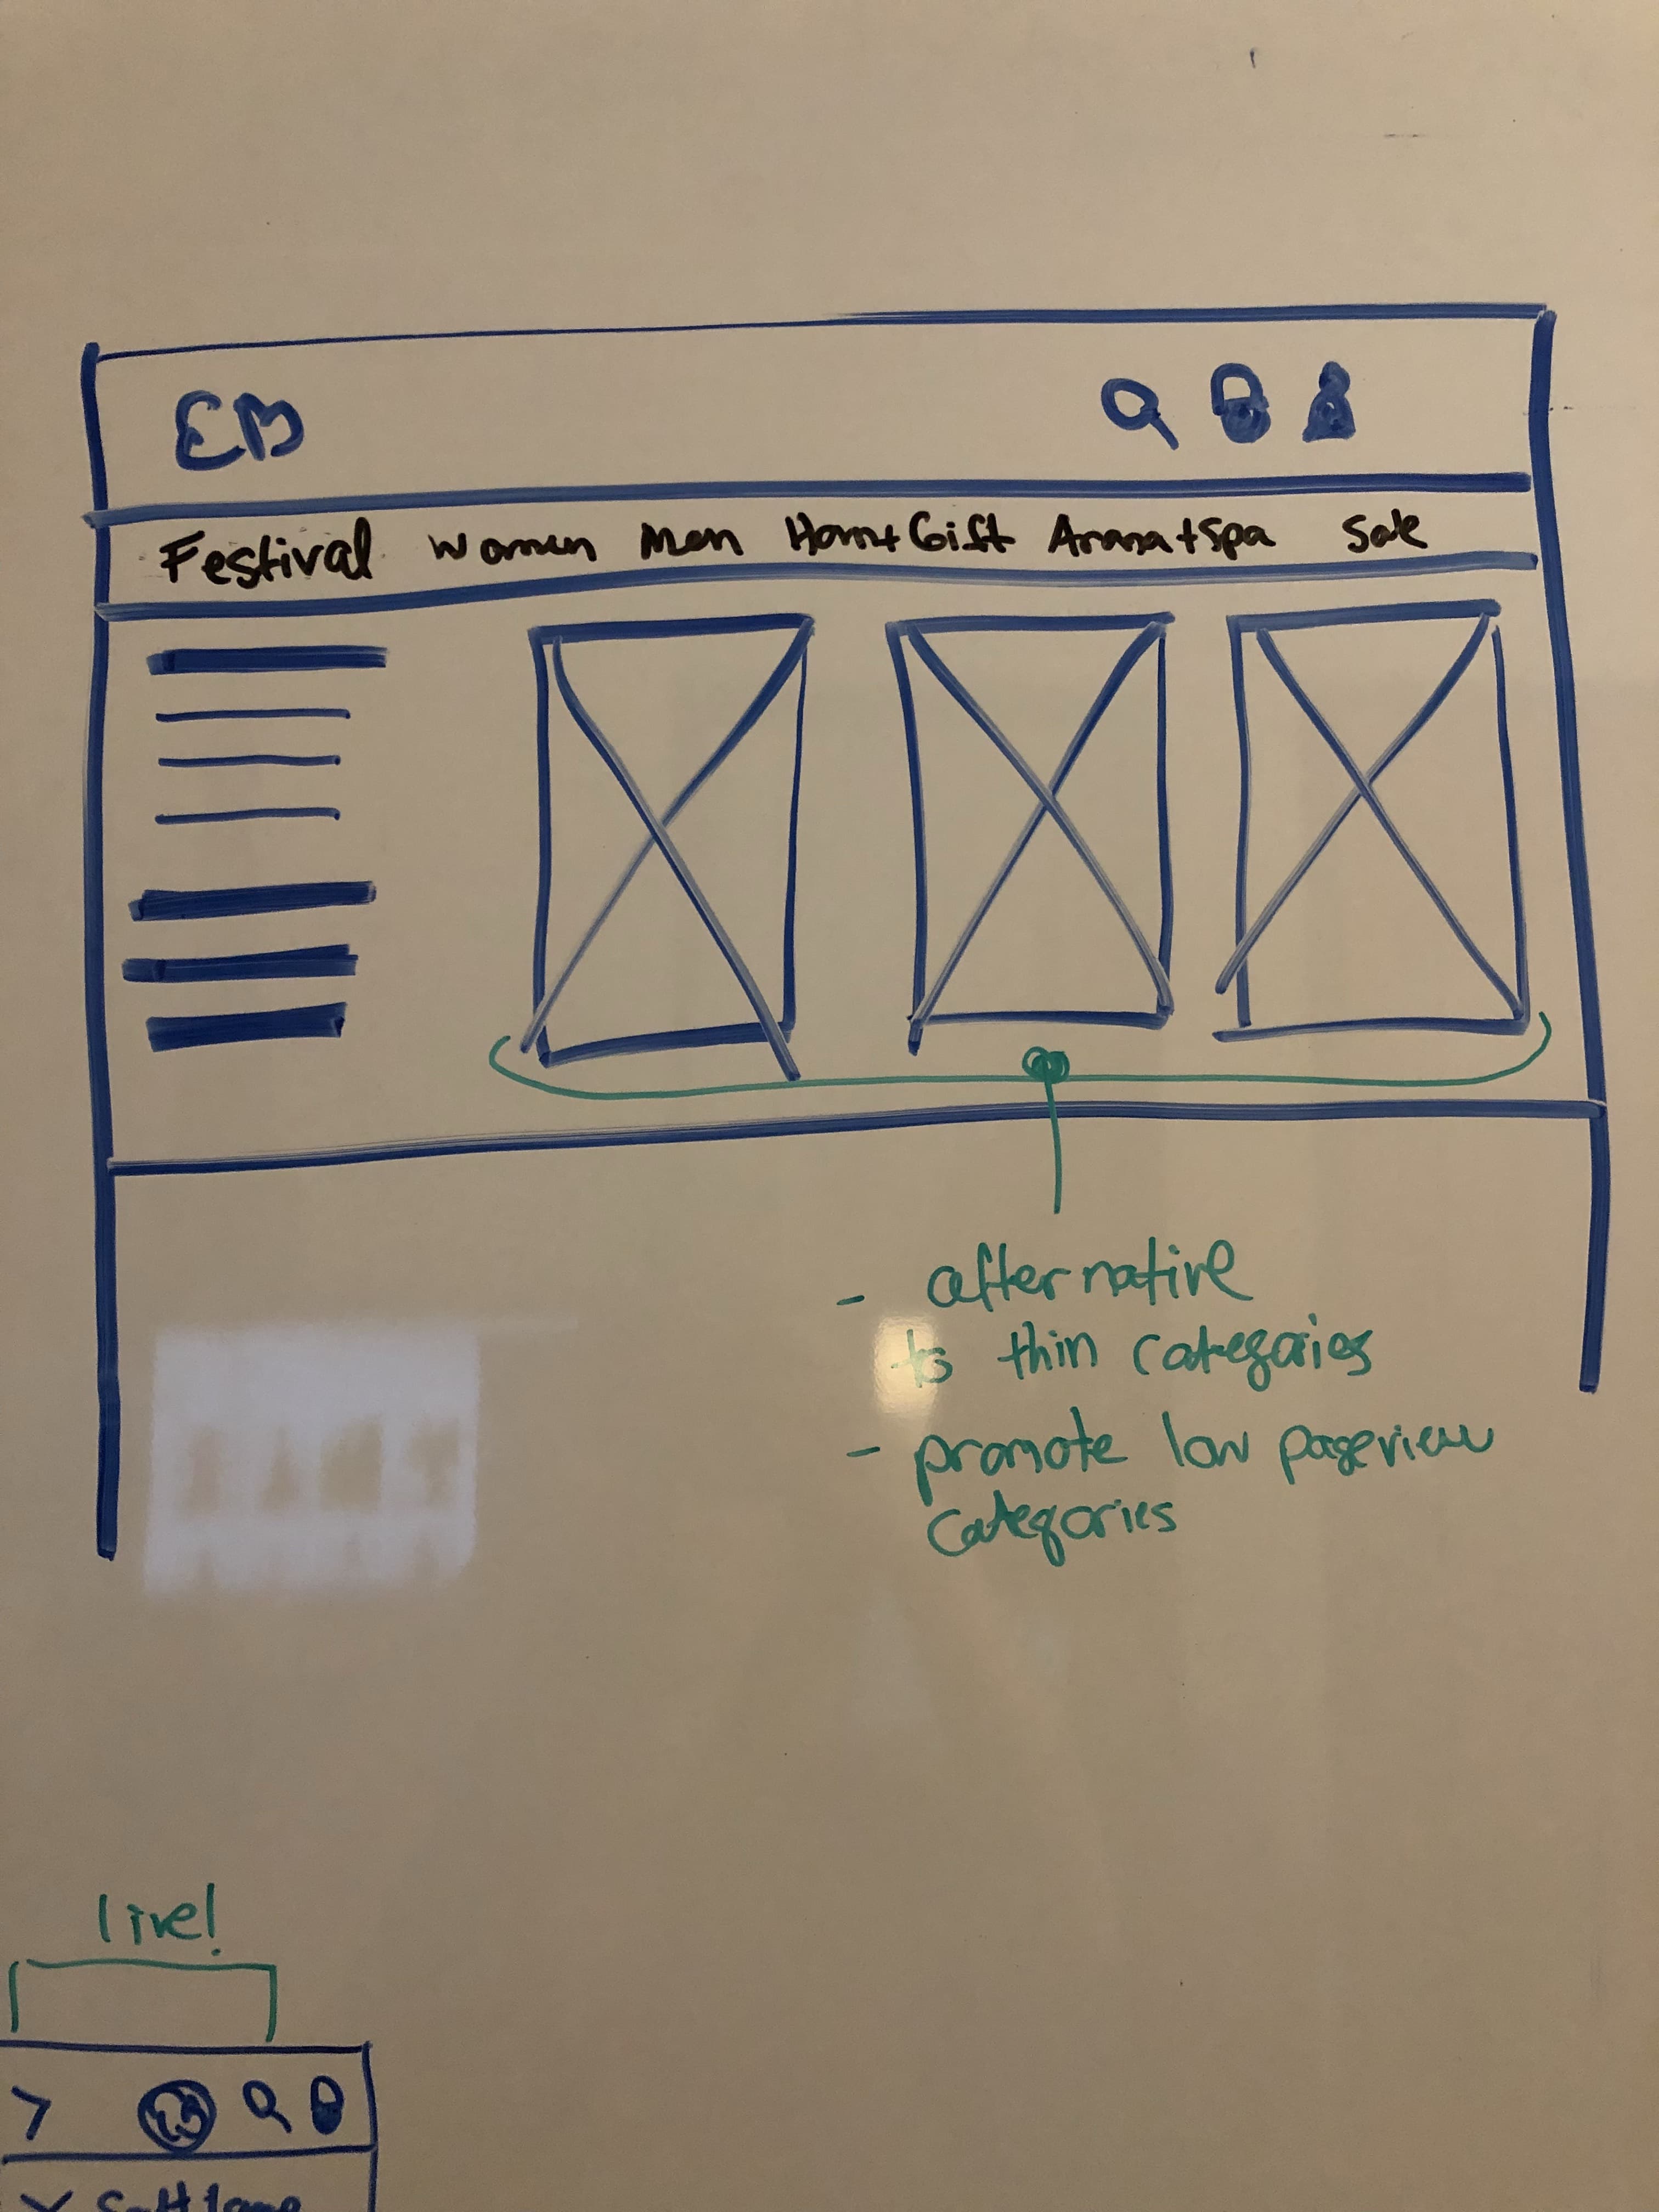 EB
Festival Women Men Home+Gift Aroma+Spa Sale
- alternative
to thin categories
- promote low pageview
categories
live!
EB